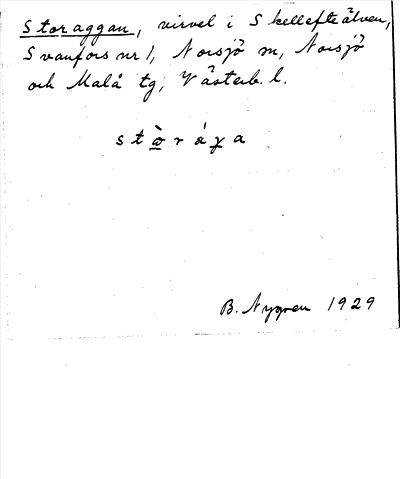 Storaggan, virvel i Skellefteälven,
Svanfors nr 1, Norsjö sn, Norsjö
och Malå tg, Västerb. l.
B. Nygren 1929